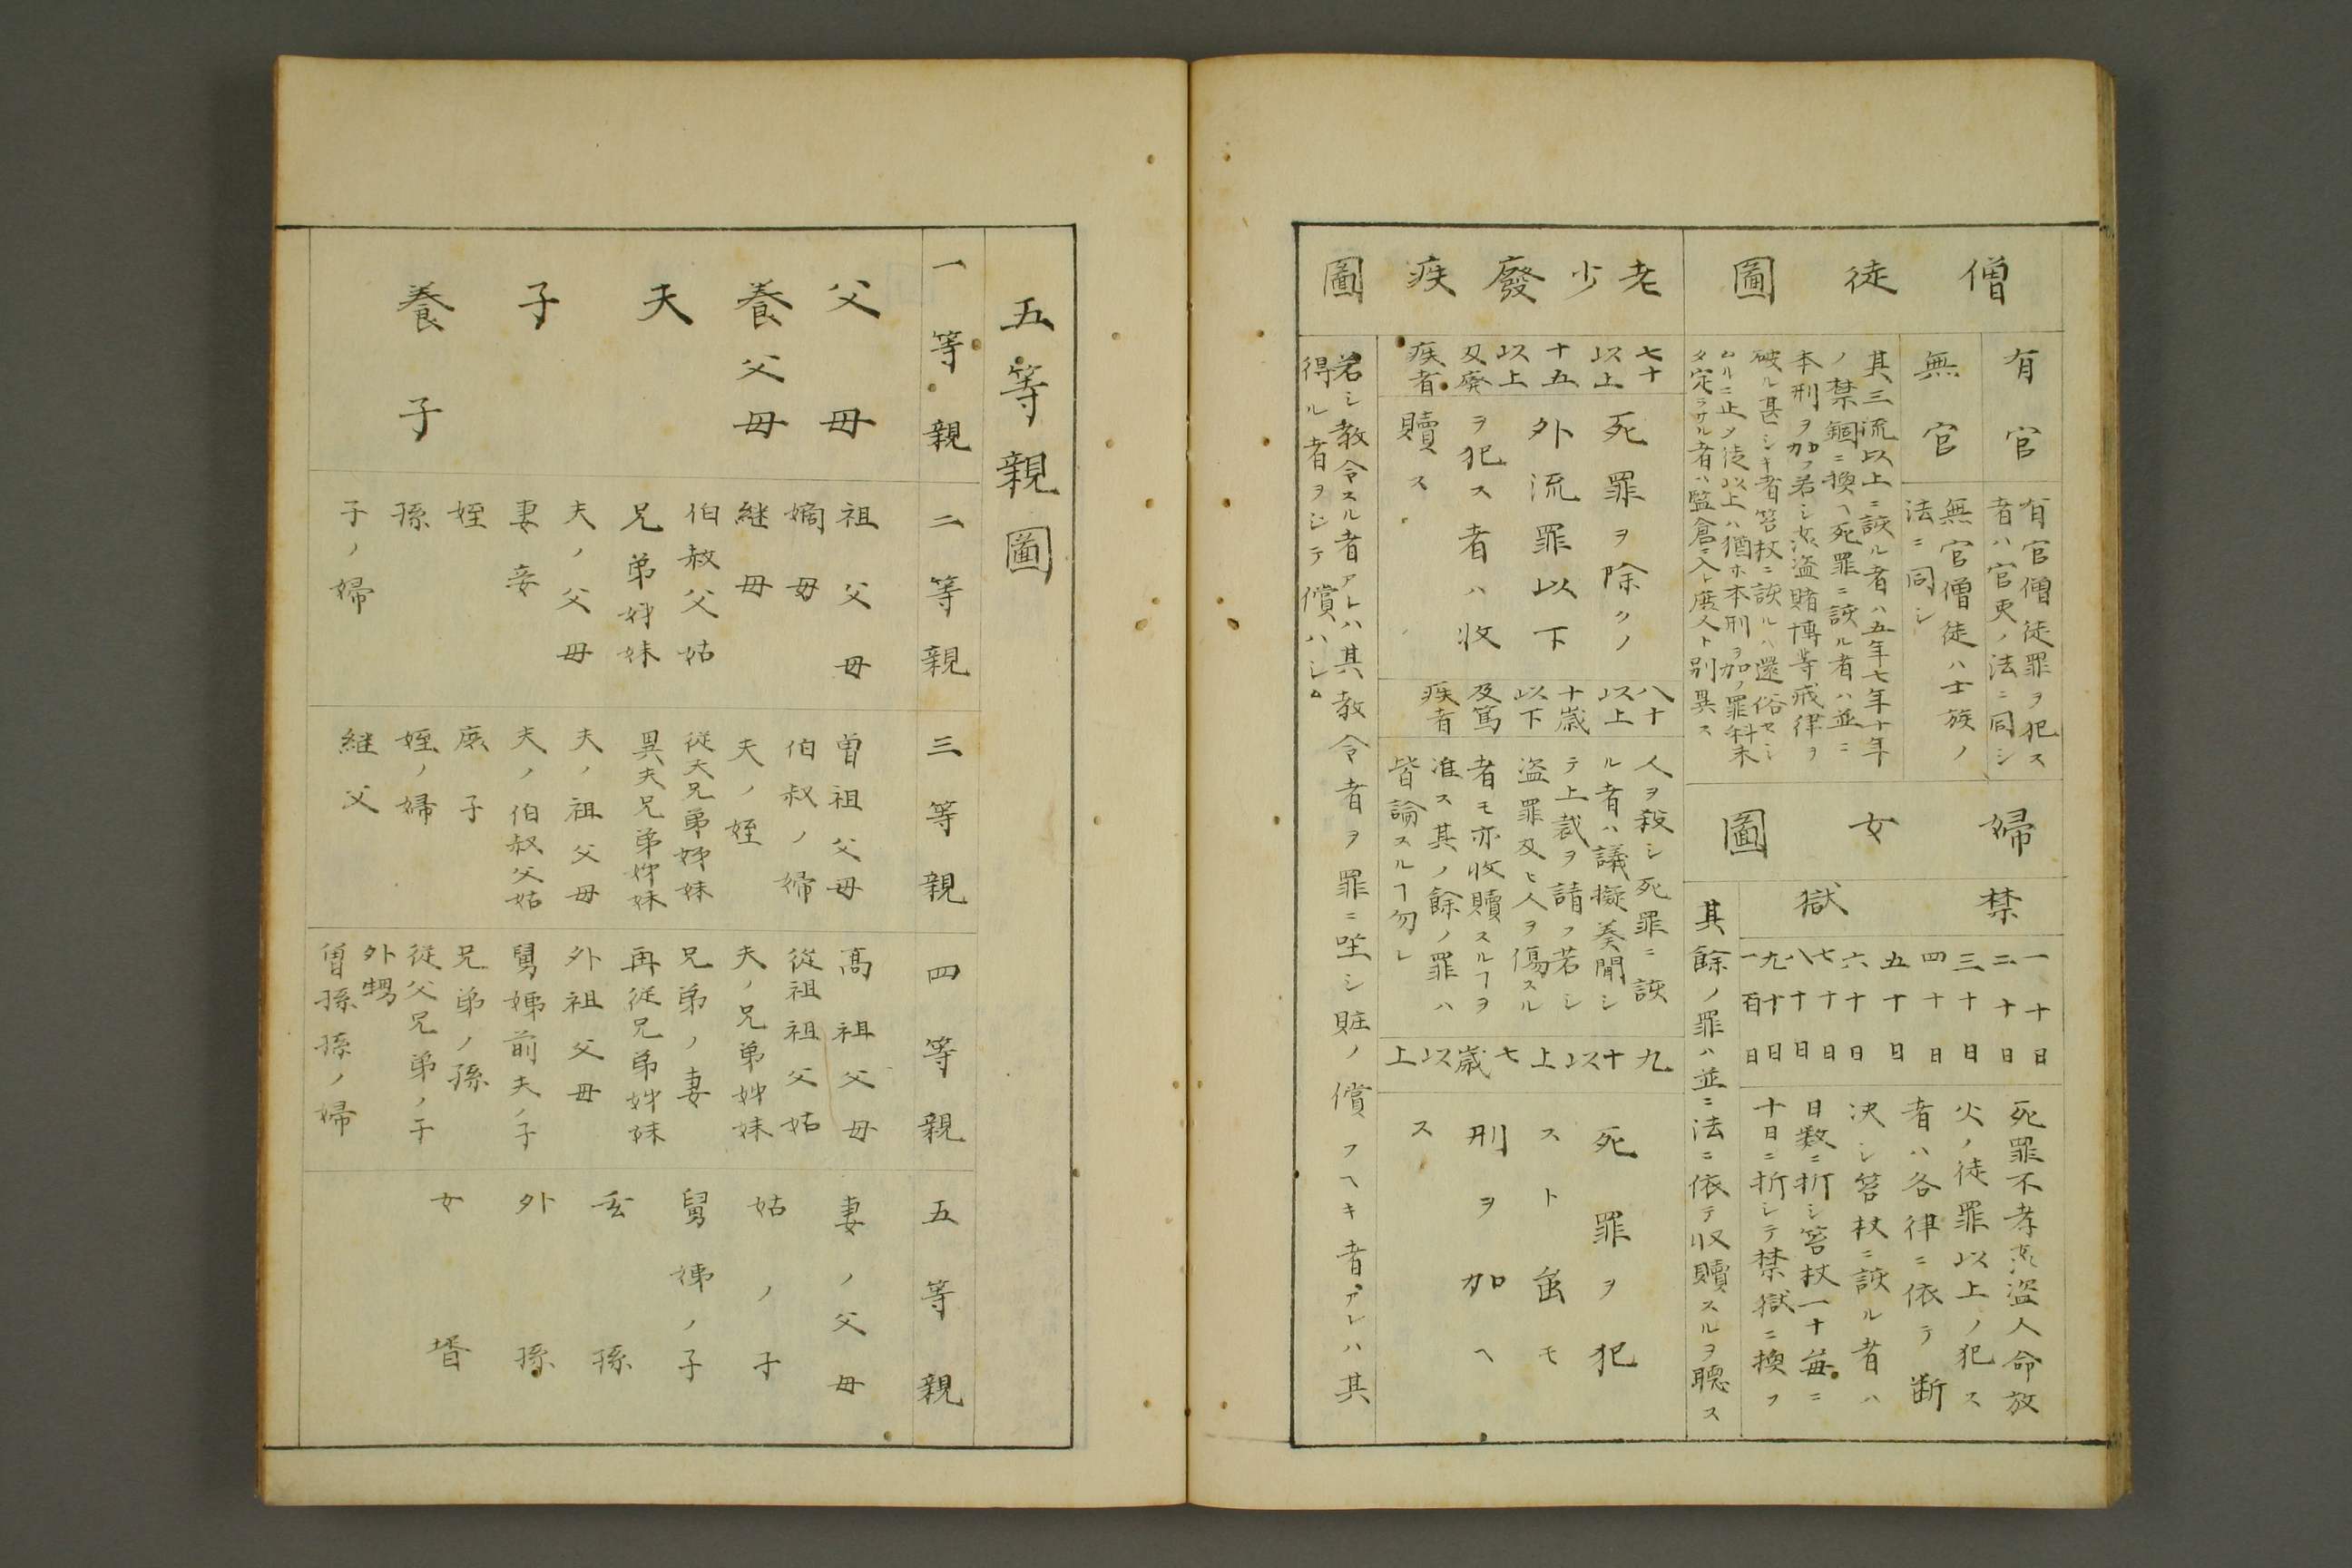 僧徒圖
有官
有官僧徒罪ヲ犯ス
者ハ官吏ノ法ニ同シ
無官
無官僧徒ハ士族ノ
法ニ同シ
其三流以上ニ該ル者ハ五年七年十年
ノ禁錮ニ換ヘ死罪ニ該ル者ハ並ニ
本刑ヲ加フ若シ姦盗賭博等戒律ヲ
破ル甚シキ者笞杖ニ該ルハ還俗セシ
ムルニ止メ徒以上ハ猶ホ本刑ヲ加ノ罪科未
タ定ラサル者ハ監倉ニ入レ庶人ト別異ス
婦女圖
禁獄
一十日
二十日
三十日
四十日
五十日
六十日
七十日
八十日
九十日
一百日
死罪不孝姦盗人命放
火ノ徒罪以上ノ犯ス
者ハ各律ニ依テ断
决シ笞杖ニ該ル者ハ
日数ニ折シ笞杖一十毎ニ
十日ニ折シテ禁獄ニ換フ
其餘ノ罪ハ並ニ法ニ依テ収贖スルヲ聽ス
老少廢疾圖
七十
以上
十五
以上
及廢
疾者
死罪ヲ除クノ
外流罪以下
ヲ犯ス者ハ收
贖ス
八十
以上
十歳
以下
及篤
疾者
人ヲ殺シ死罪ニ該
ル者ハ議擬奏聞シ
テ上裁ヲ請フ若シ
盗罪及ヒ人ヲ傷スル
者モ亦收贖スルヿヲ
准ス其ノ餘ノ罪ハ
皆論スルヿ勿レ
九十以上七歳以上
死罪ヲ犯
スト虽モ
刑ヲ加ヘ
ス
若シ教令スル者アレハ其教令者ヲ罪ニ坐シ賍ノ償フヘキ者アレハ其
得ル者ヲシテ償ハシム
五等親圖
一等親
父母
養父母
夫
子
養子
二等親
祖父母
嫡母
継母
伯叔父姑
兄弟姉妹
夫ノ父母
妻妾
姪
孫
子ノ婦
三等親
曽祖父母
伯叔ノ婦
夫ノ姪
従父兄弟姉妹
異父兄弟姉妹
夫ノ祖父母
夫ノ伯叔父姑
庶子
姪ノ婦
継父
四等親
高祖父母
従祖祖父姑
夫ノ兄弟姉妹
兄弟ノ妻
再従兄弟姉妹
外祖父母
舅姨前夫ノ子
兄弟ノ孫
従父兄弟ノ子
外甥
曽孫孫ノ婦
五等親
妻ノ父母
姑ノ子
舅姨ノ子
玄孫
外孫
女壻